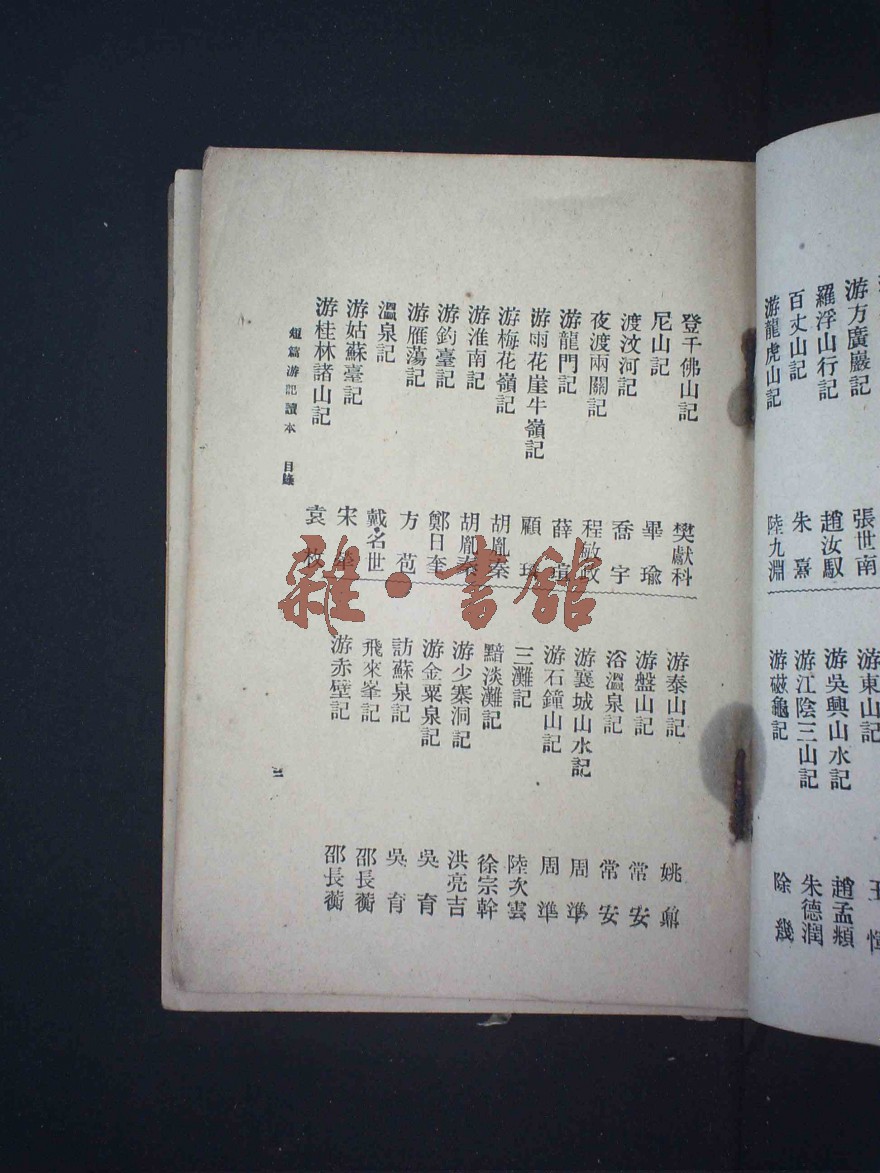 游方廣巖記 張世南
羅浮山行記 趙汝馭
百丈山記 朱熹
游龍虎山記 陸九淵
游東山記
游吳興山水記 趙孟頫
游江陰三山記 朱德潤
游磁龜記
登千佛山記 樊獻科
尼山記 畢瑜
渡汶河記 喬宇
夜渡兩關記 程敏政
游龍門記 薛瑄
游雨花崖牛嶺記 顧
游梅花嶺記 胡胤秦
游淮南記 胡胤秦
游釣臺記 鄭日奎
游雁蕩記 方苞
溫泉記 戴名世
游姑蘇臺記 宋
游桂林諸山記 袁枚
游泰山記 姚鼐
游盤山記 常安
浴溫泉記 常安
游襄城山水記 周準
游石鐘山記 周準
三灘記 陸次雲
黯淡灘記 徐宗幹
游少寨洞記 洪亮吉
游金粟泉記 吳育
訪蘇泉記 吳育
飛來峯記 邵長蘅
游赤壁記 邵長蘅
短篇游記讀本 目錄
雜·書館